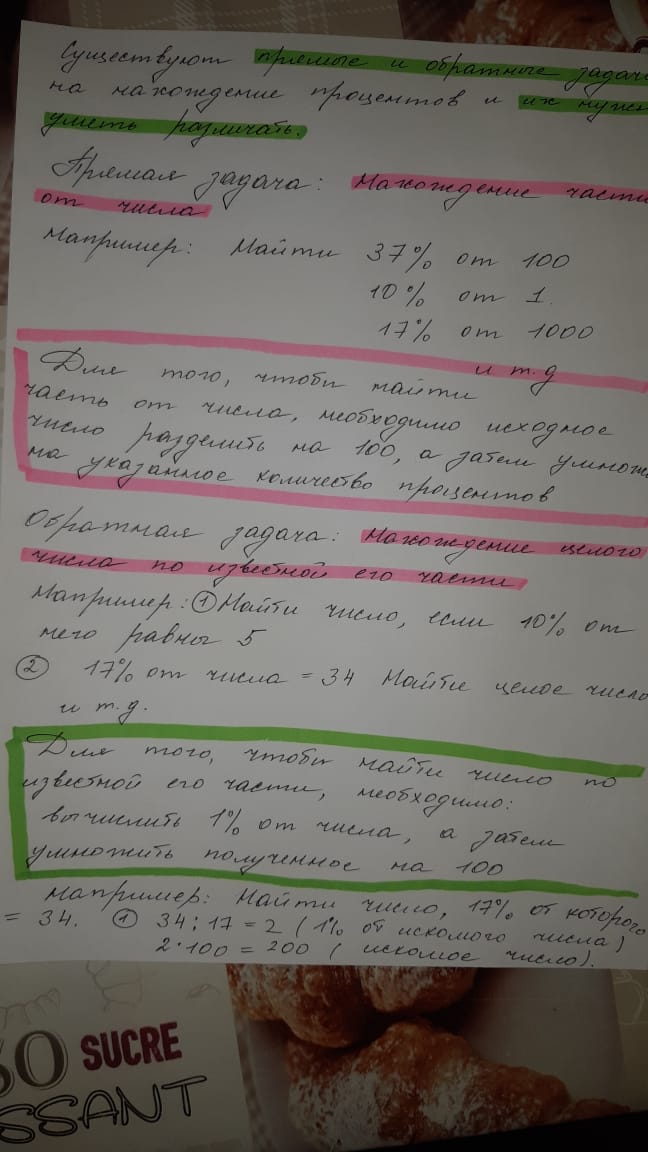 Существуют прямые и обратные задачи
на нахождение процентов и их нужн
уметь различать.
Прямая задача: Нахождение части
от числа
Например: Найти 37% от 100
10% от 1.
17% от 1000
и т.д
Для того, чтобы найти
часть от числа, необходимо исходное
число разделить на 100, а затем умнож
на указанное количество процентов
Обратная задача: Нахождение целого
числа по известной его части
Например: ① Найти число, если 10% от
него равны 5
② 17% от числа = 34 Найти целое число
и т.д.
Для того, чтобы найти число по
известной его части, необходимо:
вычислить 1% от числа, а затем
умножить полученное на 100
Например: Найти число, 17% от которого
= 34. ① 34:17 = 2 (1% от искомого числа)
2·100 = 200 (искомое число).
50 SUCRE
SSANT